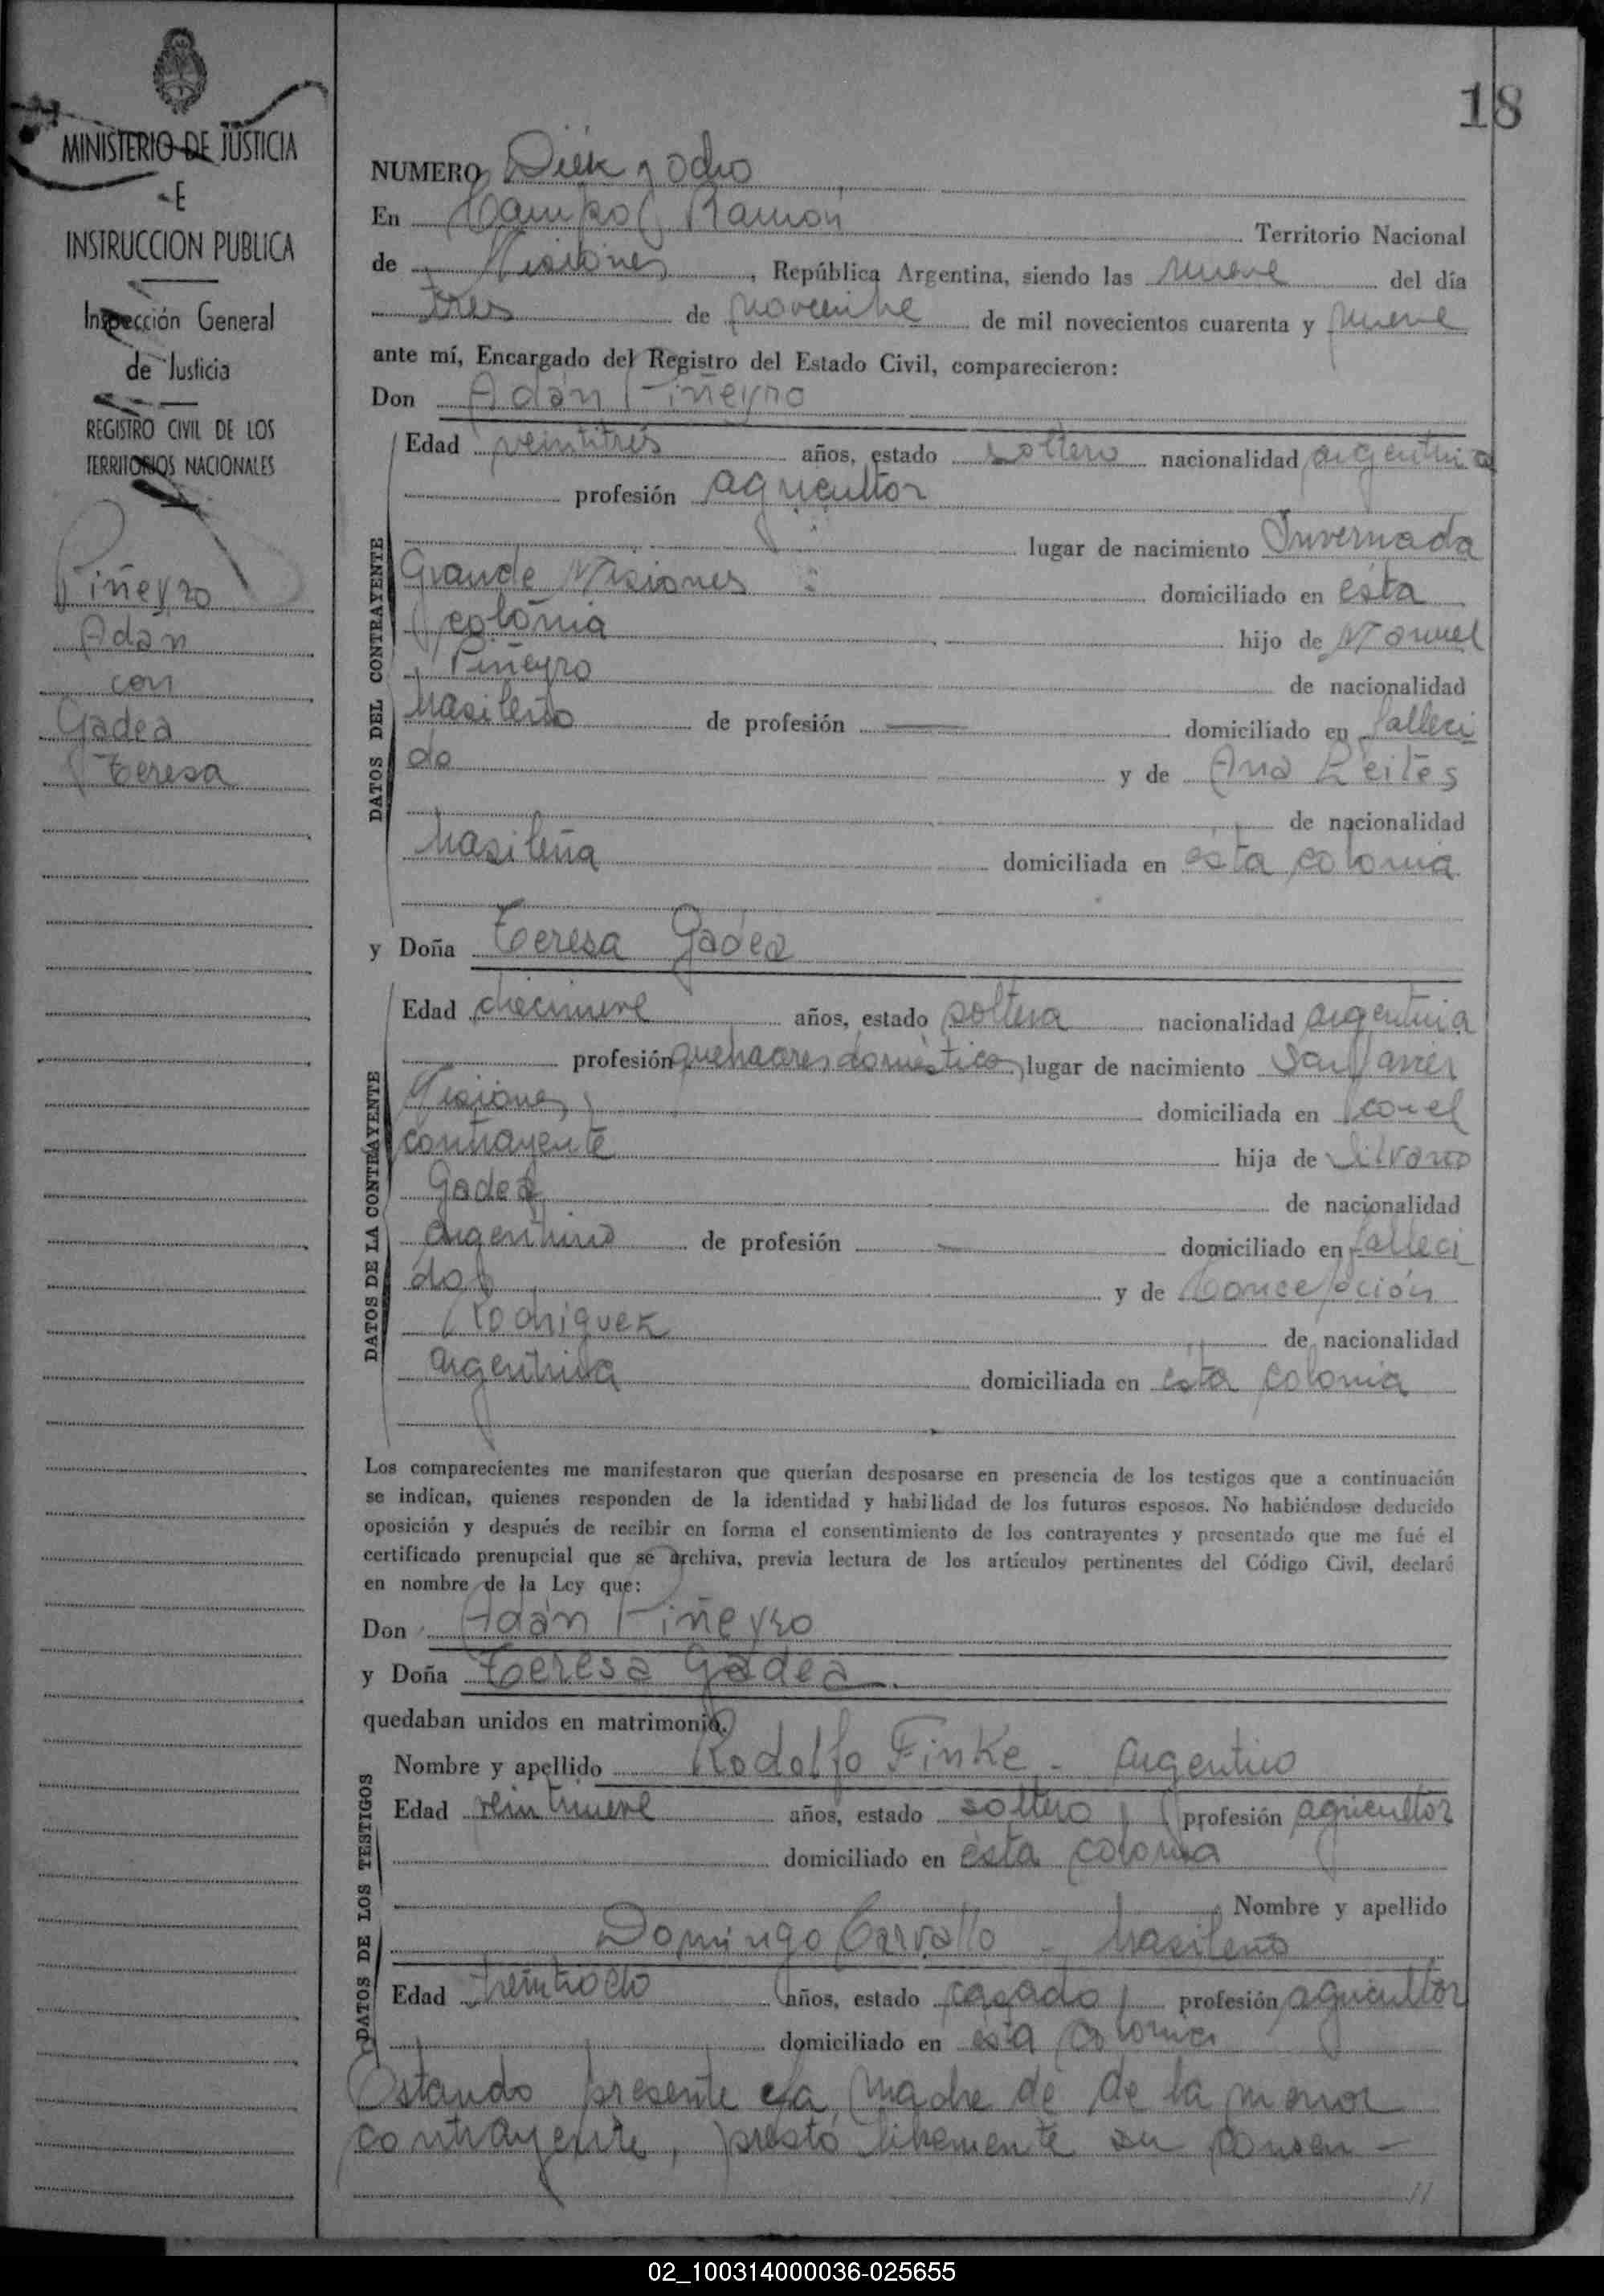 18
MINISTERIO DE JUSTICIA
E
INSTRUCCION PUBLICA
Inspección General
de Justicia
REGISTRO CIVIL DE LOS
TERRITORIOS NACIONALES
Piñeyro
Adán
con
Gadea
Teresa
NUMERO Diez y ocho
En Campo Ramón Territorio Nacional
de Misiones, República Argentina, siendo las nueve del día
tres de noviembre de mil novecientos cuarenta y nueve
ante mí, Encargado del Registro del Estado Civil, comparecieron:
Don Adán Piñeyro
DATOS DEL CONTRAYENTE
Edad veintitrés años, estado soltero nacionalidad argentina
profesión agricultor
lugar de nacimiento Invernada
Grande Misiones domiciliado en ésta
colonia hijo de Manuel
Piñeyro de nacionalidad
brasileño de profesión — domiciliado en falleci
do y de Ana Leites
de nacionalidad
brasileña domiciliada en ésta colonia
y Doña Teresa Gadea
DATOS DE LA CONTRAYENTE
Edad diecinueve años, estado soltera nacionalidad argentina
profesión quehaceres domésticos, lugar de nacimiento San Javier
Misiones domiciliada en con el
contrayente hija de Silvano
Gadea de nacionalidad
argentino de profesión — domiciliado en falleci
do y de Concepción
Rodriguez de nacionalidad
argentina domiciliada en ésta colonia
Los comparecientes me manifestaron que querían desposarse en presencia de los testigos que a continuación
se indican, quienes responden de la identidad y habilidad de los futuros esposos. No habiéndose deducido
oposición y después de recibir en forma el consentimiento de los contrayentes y presentado que me fué el
certificado prenupcial que se archiva, previa lectura de los artículos pertinentes del Código Civil, declaré
en nombre de la Ley que:
Don Adán Piñeyro
y Doña Teresa Gadea
quedaban unidos en matrimonio.
DATOS DE LOS TESTIGOS
Nombre y apellido Rodolfo Finke - argentino
Edad veintinueve años, estado soltero profesión agricultor
domiciliado en ésta colonia
Nombre y apellido
Domingo Carvallo - brasileño
Edad treintiocho años, estado casado profesión agricultor
domiciliado en ésta colonia
Estando presente la madre de de la menor
contrayente, prestó libremente su consen-
//
02_100314000036-025655